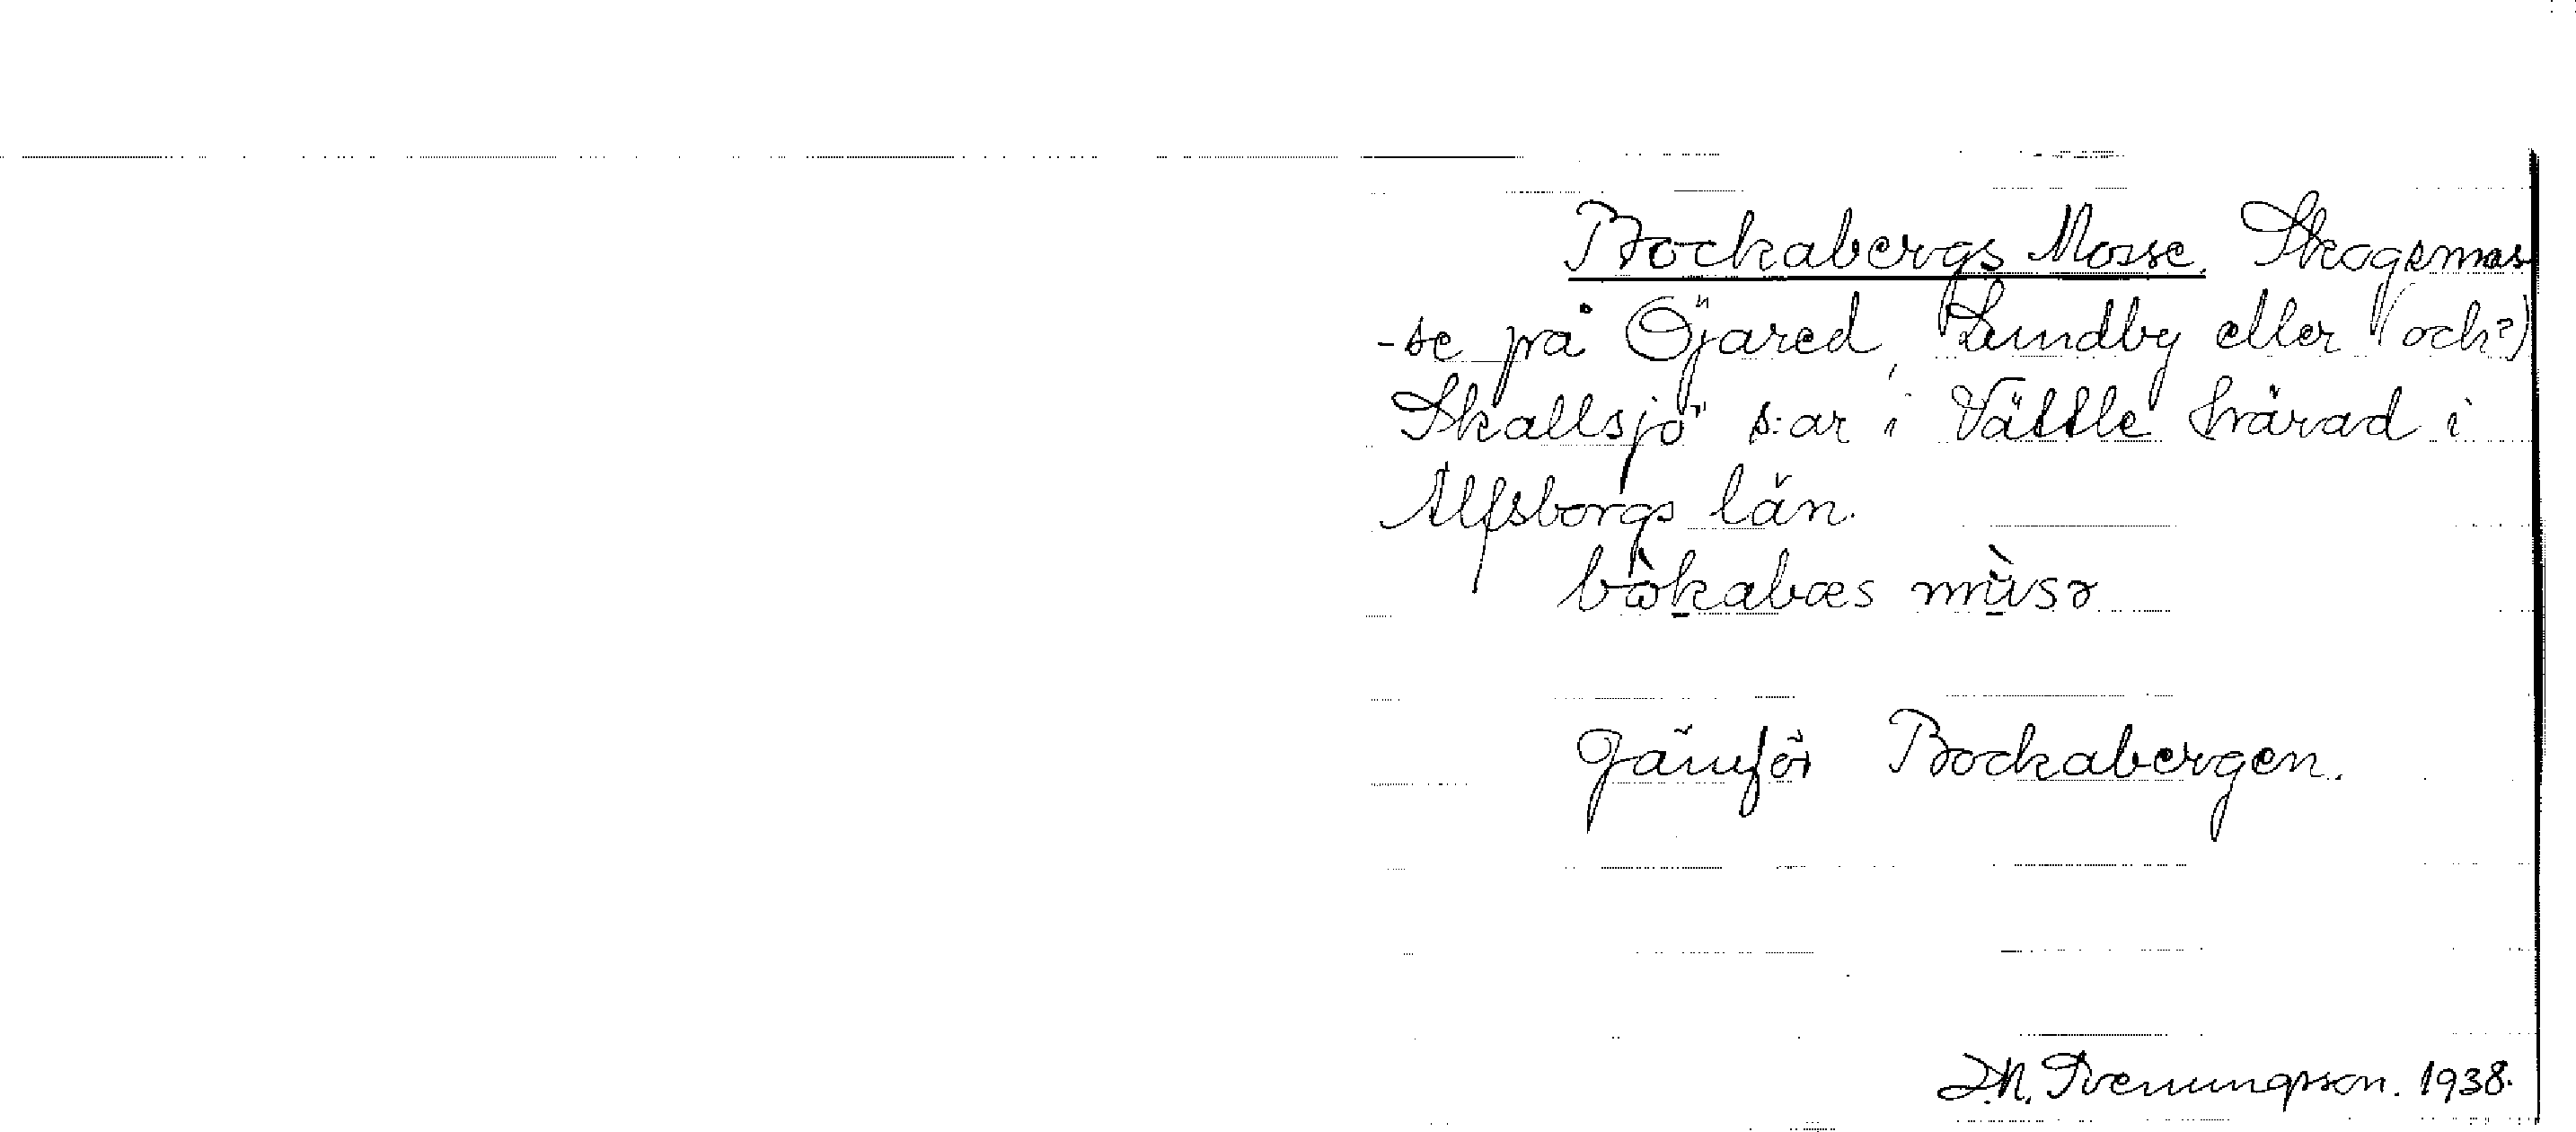 Bockabergs Mosse. Skogsmos
-se på Öjared, Lundby eller (och?)
Skallsjö s:ar i Vättle härad i
Älfsborgs län.
bòkabæs mùsə
Jämför Bockabergen.
D.N. Svenungsson. 1938.